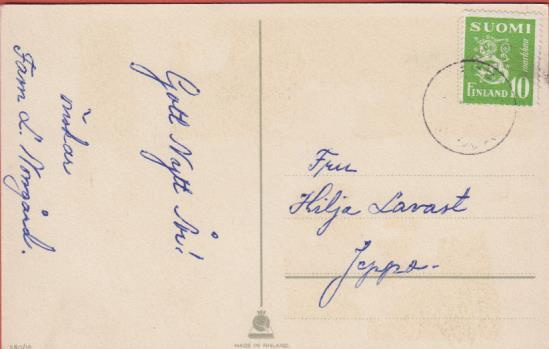 Gott Nytt År!!
önskar
Fam L. Norrgård.
SUOMI
markkaa
FINLAND 10
Fru
Hilja Lavast
Jeppo-
MADE IN FINLAND.